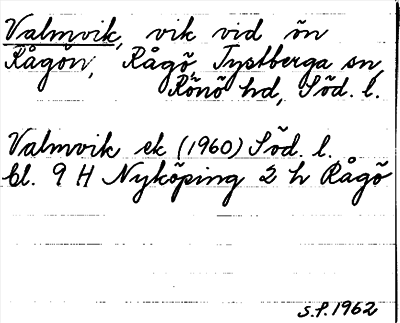 Valmvik, vik vid ön
Rågön, Rågö, Tystberga sn,
Rönö hd, Söd. l.
Valmvik ek (1960) Söd. l.
bl. 9 H Nyköping 2 h Rågö
S.f. 1962